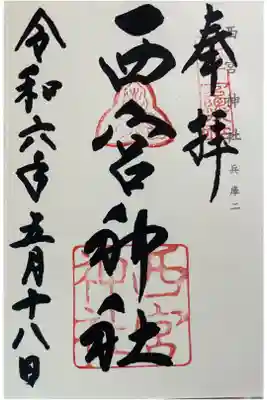 奉拝
西宮神社
兵庫二
西宮神社
西宮神社
令和六年五月十八日